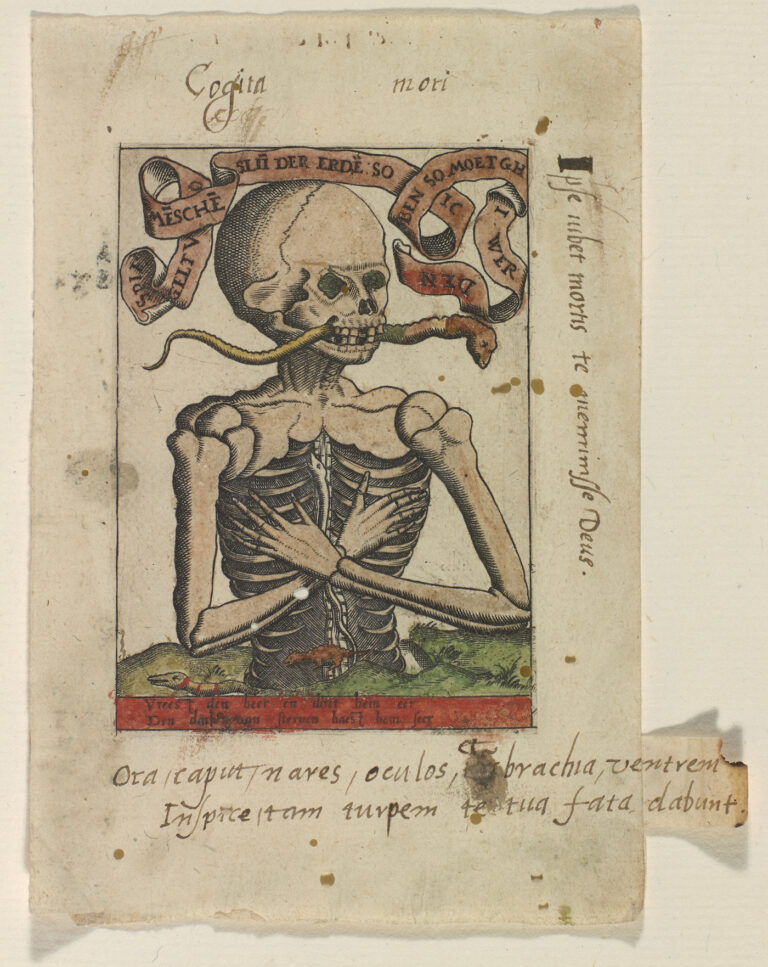 Cogita mori
SPIEGELT V O MĒSCHĒ SLIJ̄ DER ERDĒ SO IC BEN SO MOET GHI WERDEN
Ipse iubet mortis te meminisse Deus.
Vreest den heer en doet hem eer
Den dach van sterven haest hem seer
Ora, caput, nares, oculos, et brachia, ventrem
Inspice, tam turpem te tua fata dabunt